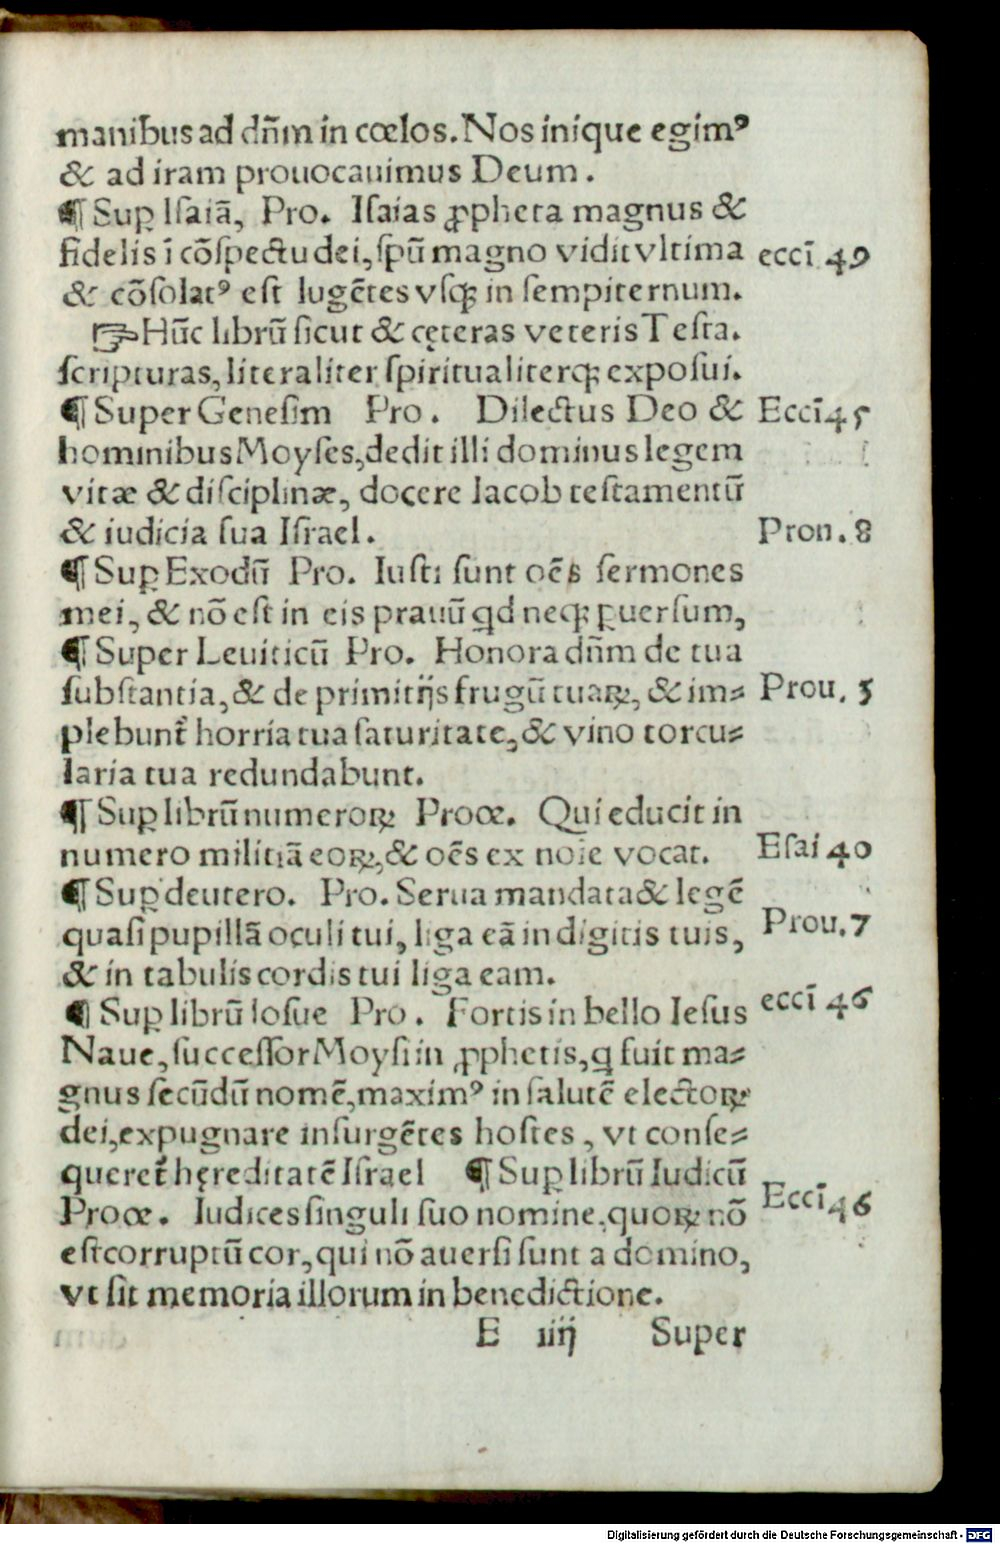 manibus ad dn̄m in cœlos. Nos inique egimꝰ
& ad iram prouocauimus Deum.
¶ Suꝑ Isaiā, Pro. Isaias ꝓpheta magnus &
fidelis ī cōspectu dei, spū magno vidit vltima
eccī 49
& cōsolatꝰ est lugētes vsqꝫ in sempiternum.
☞ Hūc librū sicut & cęteras veteris Testa.
scripturas, literaliter spiritualiterqꝫ exposui.
¶ Super Genesim Pro. Dilectus Deo &
Eccī 45
hominibus Moyses, dedit illi dominus legem
vitæ & disciplinæ, docere Iacob testamentū
& iudicia sua Israel.
Pron. 8
¶ Suꝑ Exodū Pro. Iusti sunt oēs sermones
mei, & nō est in eis prauū qd neqꝫ ꝑuersum,
¶ Super Leuiticū Pro. Honora dn̄m de tua
substantia, & de primitijs frugū tuaꝝ, & im⸗
Prou. 3
plebunt̄ horria tua saturitate, & vino torcu⸗
laria tua redundabunt.
¶ Suꝑ librū numeroꝝ Prooe. Qui educit in
numero militiā eoꝝ, & oēs ex noīe vocat.
Esai 40
¶ Suꝑ deutero. Pro. Serua mandata & legē
quasi pupillā oculi tui, liga eā in digitis tuis,
Prou. 7
& in tabulis cordis tui liga eam.
¶ Suꝑ librū Iosue Pro. Fortis in bello Iesus
eccī 46
Naue, successor Moysi in ꝓphetis, q fuit ma⸗
gnus secūdū nomē, maximꝰ in salutē electoꝝ
dei, expugnare insurgētes hostes, vt conse⸗
queret̄ hęreditatē Israel ¶ Suꝑ librū Iudicū
Prooe. Iudices singuli suo nomine, quoꝝ nō
Eccī 46
est corruptū cor, qui nō auersi sunt a domino,
vt sit memoria illorum in benedictione.
E iiij Super
Digitalisierung gefördert durch die Deutsche Forschungsgemeinschaft - DFG